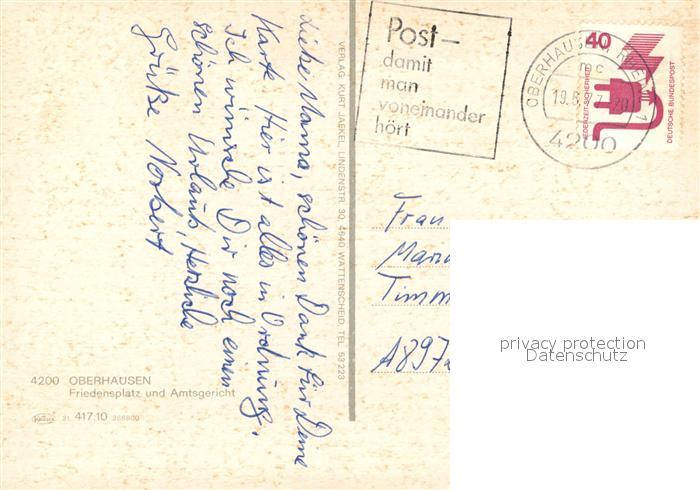 Liebe Mama, schönen Dank für Deine
Karte. Hier ist alles in Ordnung.
Ich wünsche Dir noch einen
schönen Urlaub, Herzliche
Grüße Norbert
VERLAG: KURT JAEKEL, LINDENSTR. 30, 4640 WATTENSCHEID, TEL. 53 223
4200 OBERHAUSEN
Friedensplatz und Amtsgericht
21 417.10
Post –
damit
man
voneinander
hört
OBERHAUSEN
mc
4200
40
JEDERZEIT SICHERHEIT
DEUTSCHE BUNDESPOST
Frau
Timm
A897
privacy protection
Datenschutz